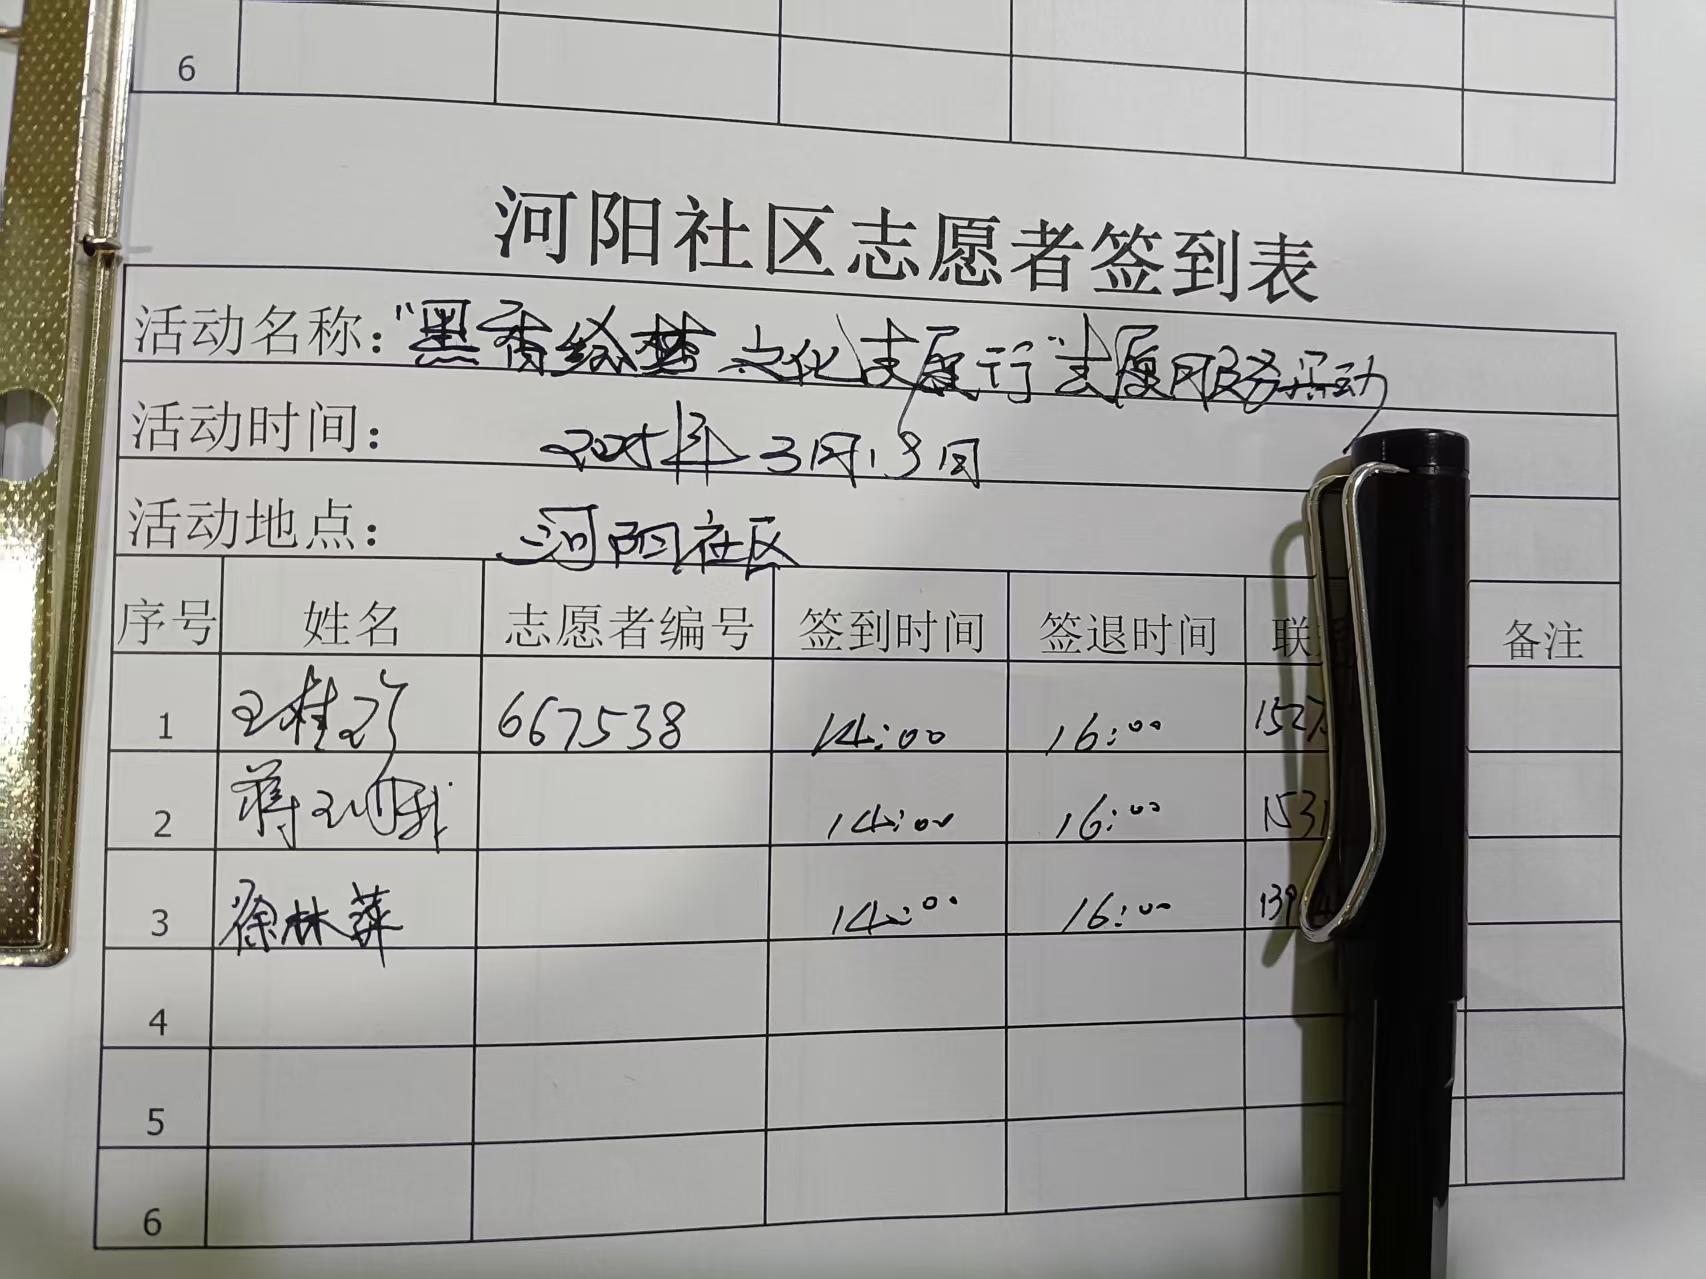 6
河阳社区志愿者签到表
活动名称："墨香绘梦 文化志愿行"志愿服务活动
活动时间： 2025年3月13日
活动地点： 河阳社区
序号 姓名 志愿者编号 签到时间 签退时间 联 备注
1 王桂 667538 14:00 16:00 1527
2 蒋 14:00 16:00 153
3 徐林萍 14:00 16:00 139
4
5
6